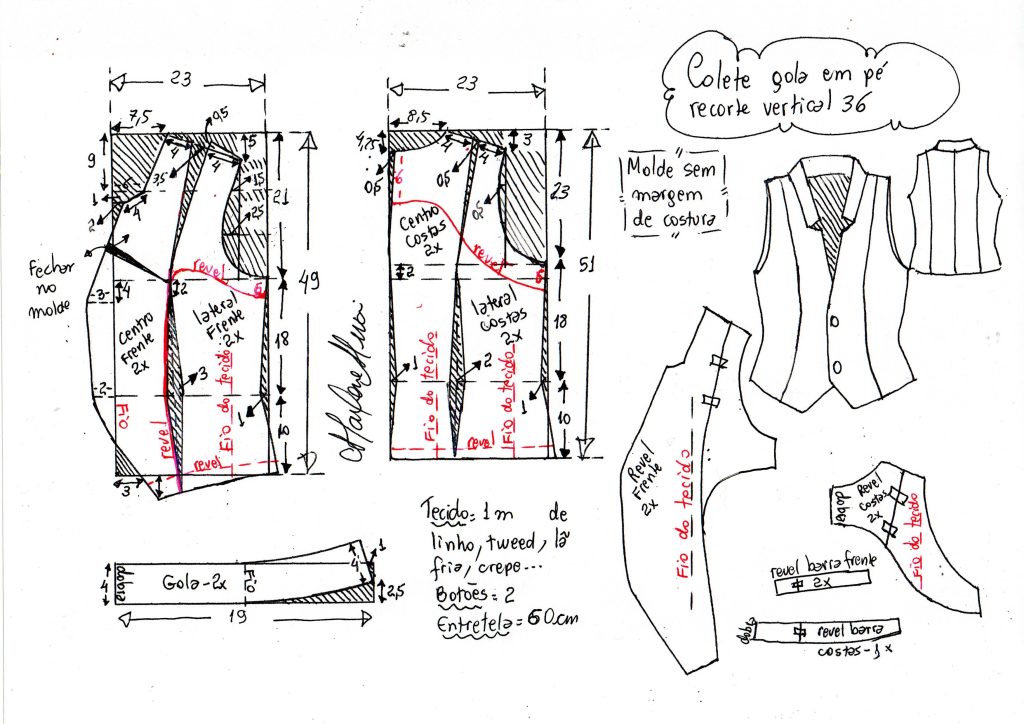 Colete gola em pé
recorte vertical 36
Molde sem
margem
de costura
23
7,5
9,5
9
5
4
4
3,5
1,5
5
1
4
2
2,5
21
Fechar
no
molde
revel
6
3
4
2
49
Centro
Frente
2x
lateral
Frente
2x
18
3
2
1
Fio
revel
Fio do tecido
10
revel
3
23
8,5
4,75
4
4
3
0,5
0,5
0,5
6
23
Centro
Costas
2x
revel
6
2
51
lateral
Costas
2x
18
1
2
1
Fio do tecido
Fio do tecido
10
revel
4
dobra
Gola-2x
Fio
4
1
2,5
19
Tecido=1m de
linho, tweed, lã
fria, crepe...
Botões=2
Entretela=60cm
Revel
Frente
2x
Fio do tecido
dobra
Revel
Costas
2x
Fio do tecido
revel barra frente
2x
dobra
revel barra
costas-1x